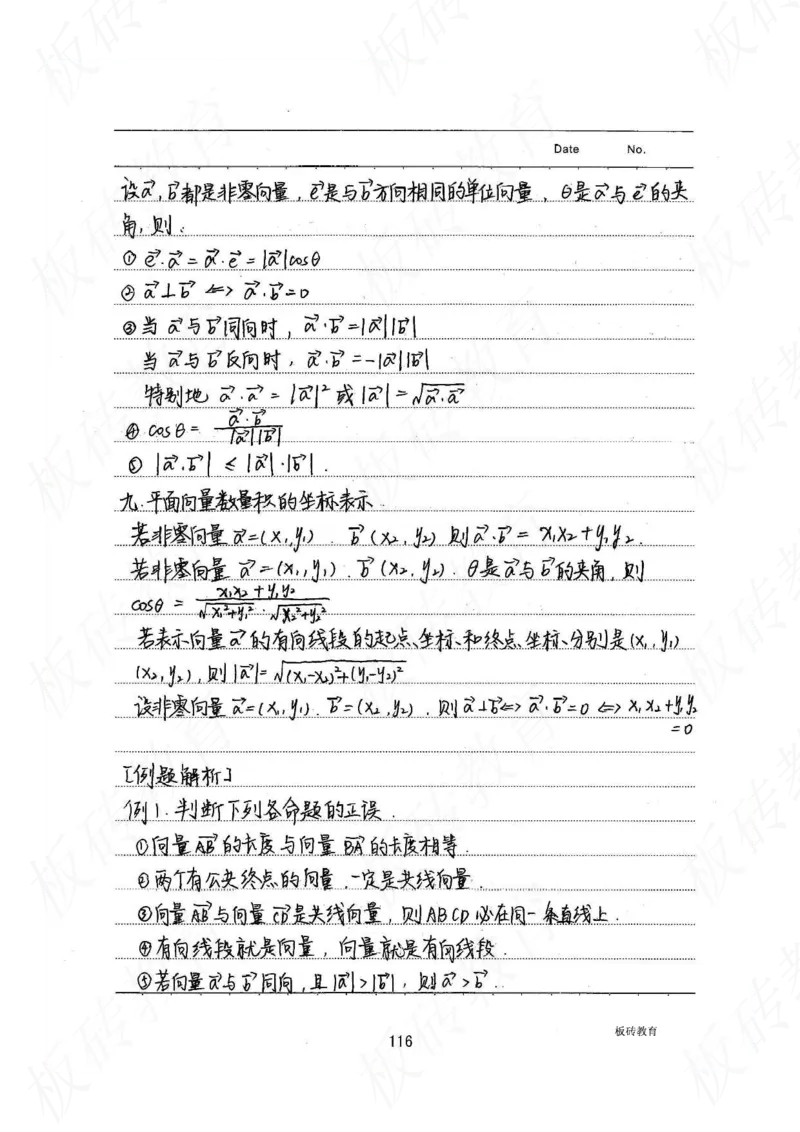 Date No.
设a⃗,b⃗都是非零向量,e⃗是与b⃗方向相同的单位向量,θ是a⃗与e⃗的夹
角,则:
① e⃗·a⃗=a⃗·e⃗=|a⃗|cosθ
② a⃗⊥b⃗ <=> a⃗·b⃗=0
③当a⃗与b⃗同向时,a⃗·b⃗=|a⃗||b⃗|
当a⃗与b⃗反向时,a⃗·b⃗=-|a⃗||b⃗|
特别地 a⃗·a⃗=|a⃗|²或|a⃗|=√(a⃗·a⃗)
④ cosθ= a⃗·b⃗/|a⃗||b⃗|
⑤ |a⃗·b⃗| ≤ |a⃗|·|b⃗|.
九.平面向量数量积的坐标表示
若非零向量a⃗=(x₁,y₁).b⃗(x₂,y₂)则a⃗·b⃗=x₁x₂+y₁y₂.
若非零向量a⃗=(x₁,y₁).b⃗(x₂,y₂).θ是a⃗与b⃗的夹角,则
cosθ= x₁x₂+y₁y₂/√(x₁²+y₁²)·√(x₂²+y₂²)
若表示向量a⃗的有向线段的起点、坐标、和终点、坐标、分别是(x₁,y₁)
(x₂,y₂),则|a⃗|=√((x₁-x₂)²+(y₁-y₂)²)
设非零向量a⃗=(x₁,y₁).b⃗=(x₂,y₂).则a⃗⊥b⃗<=>a⃗·b⃗=0<=>x₁x₂+y₁y₂
=0
[例题解析]
例1.判断下列各命题的正误.
①向量AB⃗的长度与向量BA⃗的长度相等.
②两个有公共终点的向量,一定是共线向量.
③向量AB⃗与向量CD⃗是共线向量,则ABCD必在同一条直线上.
④有向线段就是向量,向量就是有向线段.
⑤若向量a⃗与b⃗同向,且|a⃗|>|b⃗|,则a⃗>b⃗.
板砖教育
116